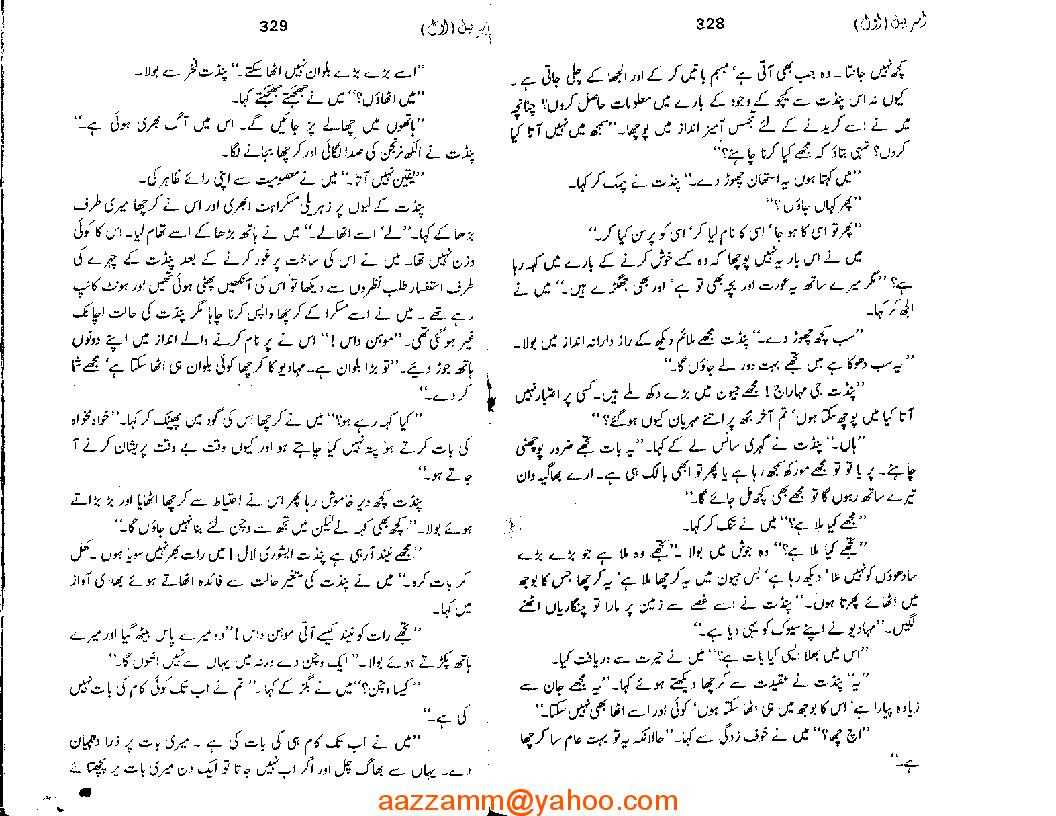 328
(اول)
کچھ نہیں جانتا۔ وہ جب بھی آتی ہے' مبہم باتیں کر کے اور الجھا کے چلی جاتی ہے۔
کیوں نہ اس پنڈت سے کچھ کے وجود کے بارے میں معلومات حاصل کروں! چنانچہ
میں نے اسے کریدنے کے لئے تجسس آمیز انداز میں پوچھا۔ "سمجھ میں نہیں آتا کیا
کروں؟ تمہی بتاؤ کہ مجھے کیا کرنا چاہئے؟"
"میں کہتا ہوں' یہ استھان چھوڑ دے۔" پنڈت نے چمک کر کہا۔
"پھر کہاں جاؤں؟"
"پھر تو اسی کا ہو جا' اسی کا نام لیا کر' اسی کو پرسن کیا کر۔"
میں نے اس بار یہ نہیں پوچھا کہ وہ کسے خوش کرنے کے بارے میں کہہ رہا
ہے؟ "مگر میرے ساتھ یہ عورت اور بچہ بھی تو ہے' اور بھی جھگڑے ہیں۔" میں نے
الجھ کر کہا۔
"سب کچھ چھوڑ دے۔" پنڈت مجھے ملائم دیکھ کے راز دارانہ انداز میں بولا۔
"یہ سب دھوکا ہے میں تجھے بہت دور لے جاؤں گا۔"
"پنڈت جی مہاراج! مجھے جیون میں بڑے دکھ ملے ہیں۔ کسی پر اعتبار نہیں
آتا کیا میں پوچھ سکتا ہوں' تم آخر مجھ پر اتنے مہربان کیوں ہو گئے؟"
"ہاں۔" پنڈت نے گہری سانس لے کے کہا۔ "یہ بات تجھے ضرور پوچھنی
چاہئے۔ پر یا تو تو مجھے مورکھ سمجھ رہا ہے یا پھر تو ابھی بالک ہی ہے۔ ارے بھاگیہ وان
تیرے ساتھ رہوں گا تو مجھے بھی کچھ مل جائے گا۔"
"مجھے کیا ملا ہے؟" میں نے تنک کر کہا۔
"تجھے کیا ملا ہے؟" وہ جوش میں بولا۔ "تجھے وہ ملا ہے جو بڑے بڑے
سادھوؤں کو نہیں ملا' دیکھ رہا ہے' بس جیون میں یہ کرچھا ملا ہے' یہ کرچھا جس کا بوجھ
میں اٹھائے پھرتا ہوں۔" پنڈت نے اسے غصے سے زمین پر مارا تو چنگاریاں اٹھنے
لگیں۔ "مہادیو نے اپنے سیوک کو یہی دیا ہے۔"
"اس میں بھلا ایسی کیا بات ہے؟" میں نے حیرت سے دریافت کیا۔
"یہ" پنڈت نے عقیدت سے کرچھا دیکھتے ہوئے کہا۔ "یہ مجھے جان سے
زیادہ پیارا ہے' اس کا بوجھ میں ہی اٹھا سکتا ہوں' کوئی اور اسے اٹھا بھی نہیں سکتا۔"
"اچ چھا؟" میں نے خوف زدگی سے کہا۔ "حالانکہ یہ تو بہت عام سا کرچھا
ہے۔"
329
(اول)
"اسے بڑے بڑے بلوان نہیں اٹھا سکتے۔" پنڈت فخر سے بولا۔
"میں اٹھاؤں؟" میں نے جھجکتے جھجکتے کہا۔
"ہاتھوں میں چھالے پڑ جائیں گے۔ اس میں آگ بھری ہوئی ہے۔"
پنڈت نے الکھ نرنجن کی صدا لگائی اور کرچھا بجانے لگا۔
"یقین نہیں آتا۔" میں نے معصومیت سے اپنی رائے ظاہر کی۔
پنڈت کے لبوں پر زہریلی مسکراہٹ ابھری اور اس نے کرچھا میری طرف
بڑھا کے کہا۔ "لے' اسے اٹھا لے۔" میں نے ہاتھ بڑھا کے اسے تھام لیا۔ اس کا کوئی
وزن نہیں تھا۔ میں نے اس کی ساخت پر غور کرنے کے بعد پنڈت کے چہرے کی
طرف استفسار طلب نظروں سے دیکھا تو اس کی آنکھیں پھٹی ہوئی تھیں اور ہونٹ کانپ
رہے تھے۔ میں نے اسے مسکرا کے کرچھا واپس کرنا چاہا مگر پنڈت کی حالت اچانک
غیر ہو گئی تھی۔ "موہن داس!" اس نے پرنام کرنے والے انداز میں اپنے دونوں
ہاتھ جوڑ دیئے۔ "تو بڑا بلوان ہے۔ مہادیو کا کرچھا کوئی بلوان ہی اٹھا سکتا ہے' مجھے شما
کر دے۔"
"کیا کہہ رہے ہو؟" میں نے کرچھا اس کی گود میں پھینک کر کہا۔ "خواہ مخواہ
کی بات کرتے ہو پتہ نہیں کیا چاہتے ہو اور کیوں وقت بے وقت پریشان کرنے آ
جاتے ہو۔"
پنڈت کچھ دیر خاموش رہا پھر اس نے احتیاط سے کرچھا اٹھایا اور بڑبڑاتے
ہوئے بولا۔ "کچھ بھی کہہ لے لیکن میں تجھ سے وچن لئے بنا نہیں جاؤں گا۔"
"مجھے نیند آ رہی ہے پنڈت ایشوری لال! میں رات بھر نہیں سویا ہوں۔ کھل
کر بات کرو۔" میں نے پنڈت کی متغیر حالت سے فائدہ اٹھاتے ہوئے بھاری آواز
میں کہا۔
"تجھے رات کو نیند کیسے آتی موہن داس!" وہ میرے پاس بیٹھ گیا اور میرے
ہاتھ پکڑتے ہوئے بولا۔ "ایک وچن دے ورنہ میں یہاں سے نہیں اٹھوں گا۔"
"کیسا وچن؟" میں نے بگڑ کے کہا۔ "تم نے اب تک کوئی کام کی بات نہیں
کی ہے۔"
"میں نے اب تک کام ہی کی بات کی ہے۔ میری بات پر ذرا دھیان
دے۔ یہاں سے بھاگ چل اور اگر اب نہیں جاتا تو ایک دن میری بات پر پچھتائے
aazzamm@yahoo.com